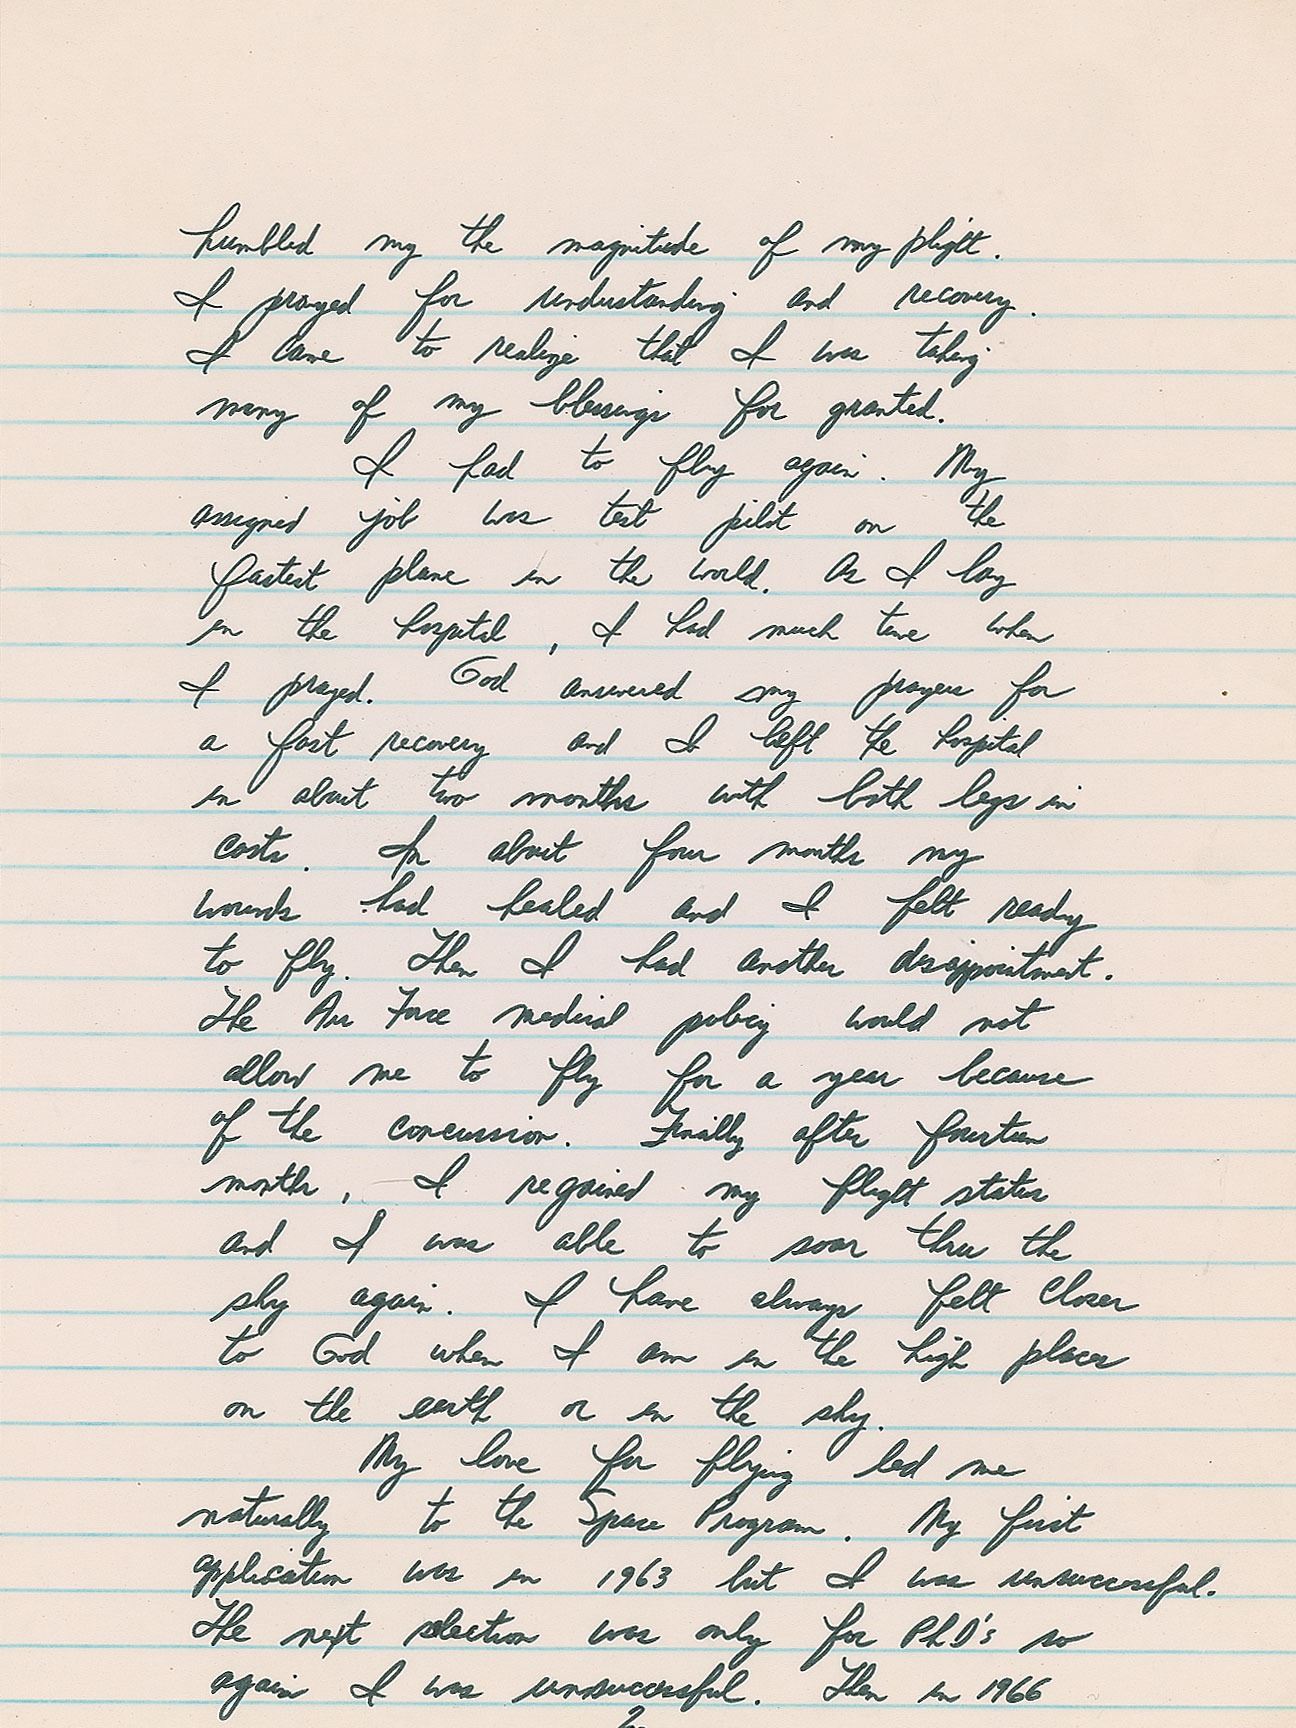 humbled my the magnitude of my plight.
I prayed for understanding and recovery.
I came to realize that I was taking
many of my blessings for granted.
I had to fly again. My
assigned job was test pilot on the
fastest plane in the world. As I lay
in the hospital, I had much time when
I prayed. God answered my prayers for
a fast recovery and I left the hospital
in about two months with both legs in
casts. In about four months my
wounds had healed and I felt ready
to fly. Then I had another disappointment.
The Air Force medical policy would not
allow me to fly for a year because
of the concussion. Finally after fourteen
months, I regained my flight status
and I was able to soar thru the
sky again. I have always felt closer
to God when I am in the high places
on the earth or in the sky.
My love for flying led me
naturally to the Space Program. My first
application was in 1963 but I was unsuccessful.
The next selection was only for PhD's so
again I was unsuccessful. Then in 1966
2